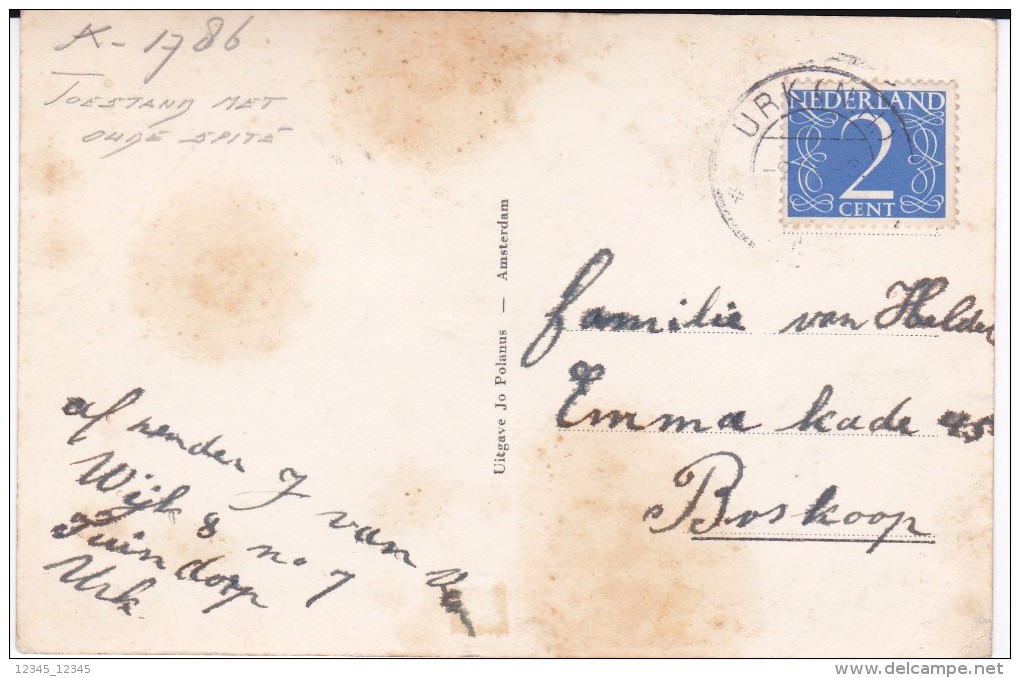 A-1786
TOESTAND MET
OUDE SPITS
URK (N.H.)
NEDERLAND
2
CENT
Uitgave Jo Polanus — Amsterdam
familie van Helden
Emma kade 45
Boskoop
afzender J van den
Wijk 8 no 7
Tuindorp
Urk
12345_12345
www.delcampe.net